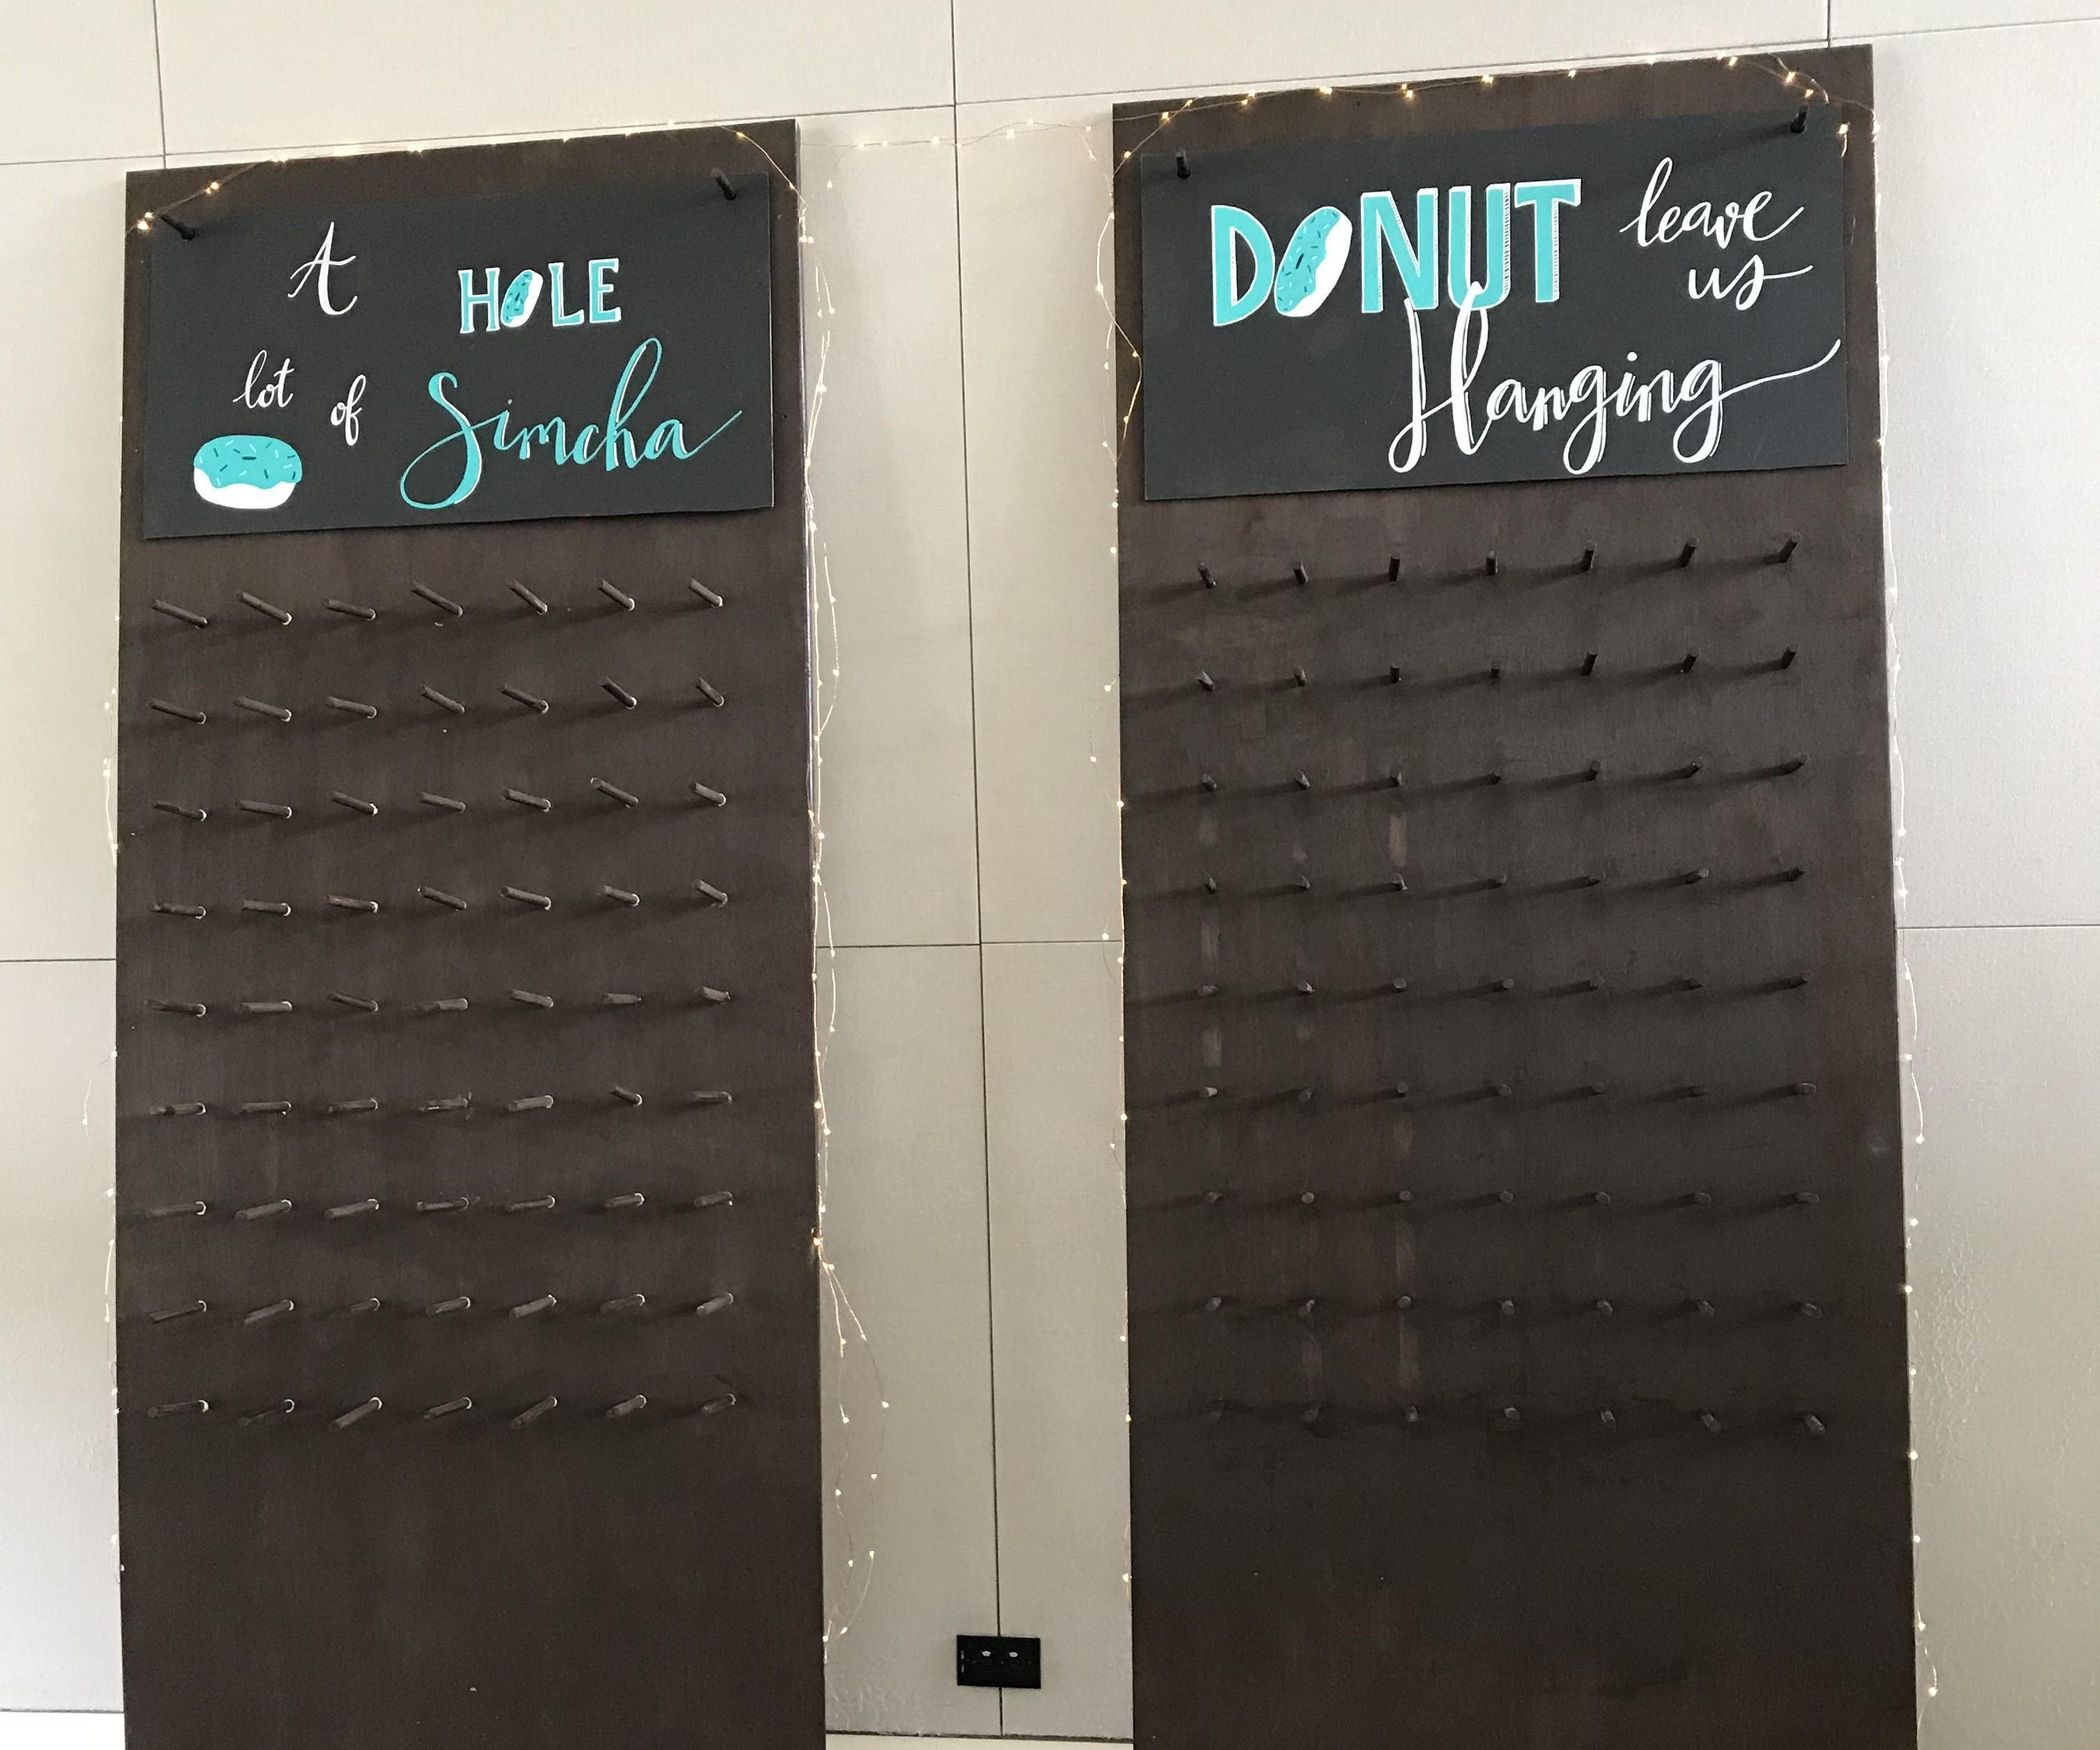 A HOLE
lot of Simcha
DONUT leave
us
Hanging